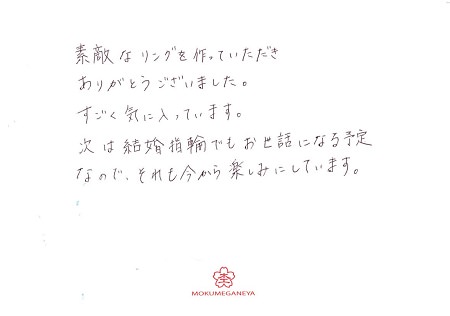 素敵なリングを作っていただき
ありがとうございました。
すごく気に入っています。
次は結婚指輪でもお世話になる予定
なので、それも今から楽しみにしています。
MOKUMEGANEYA